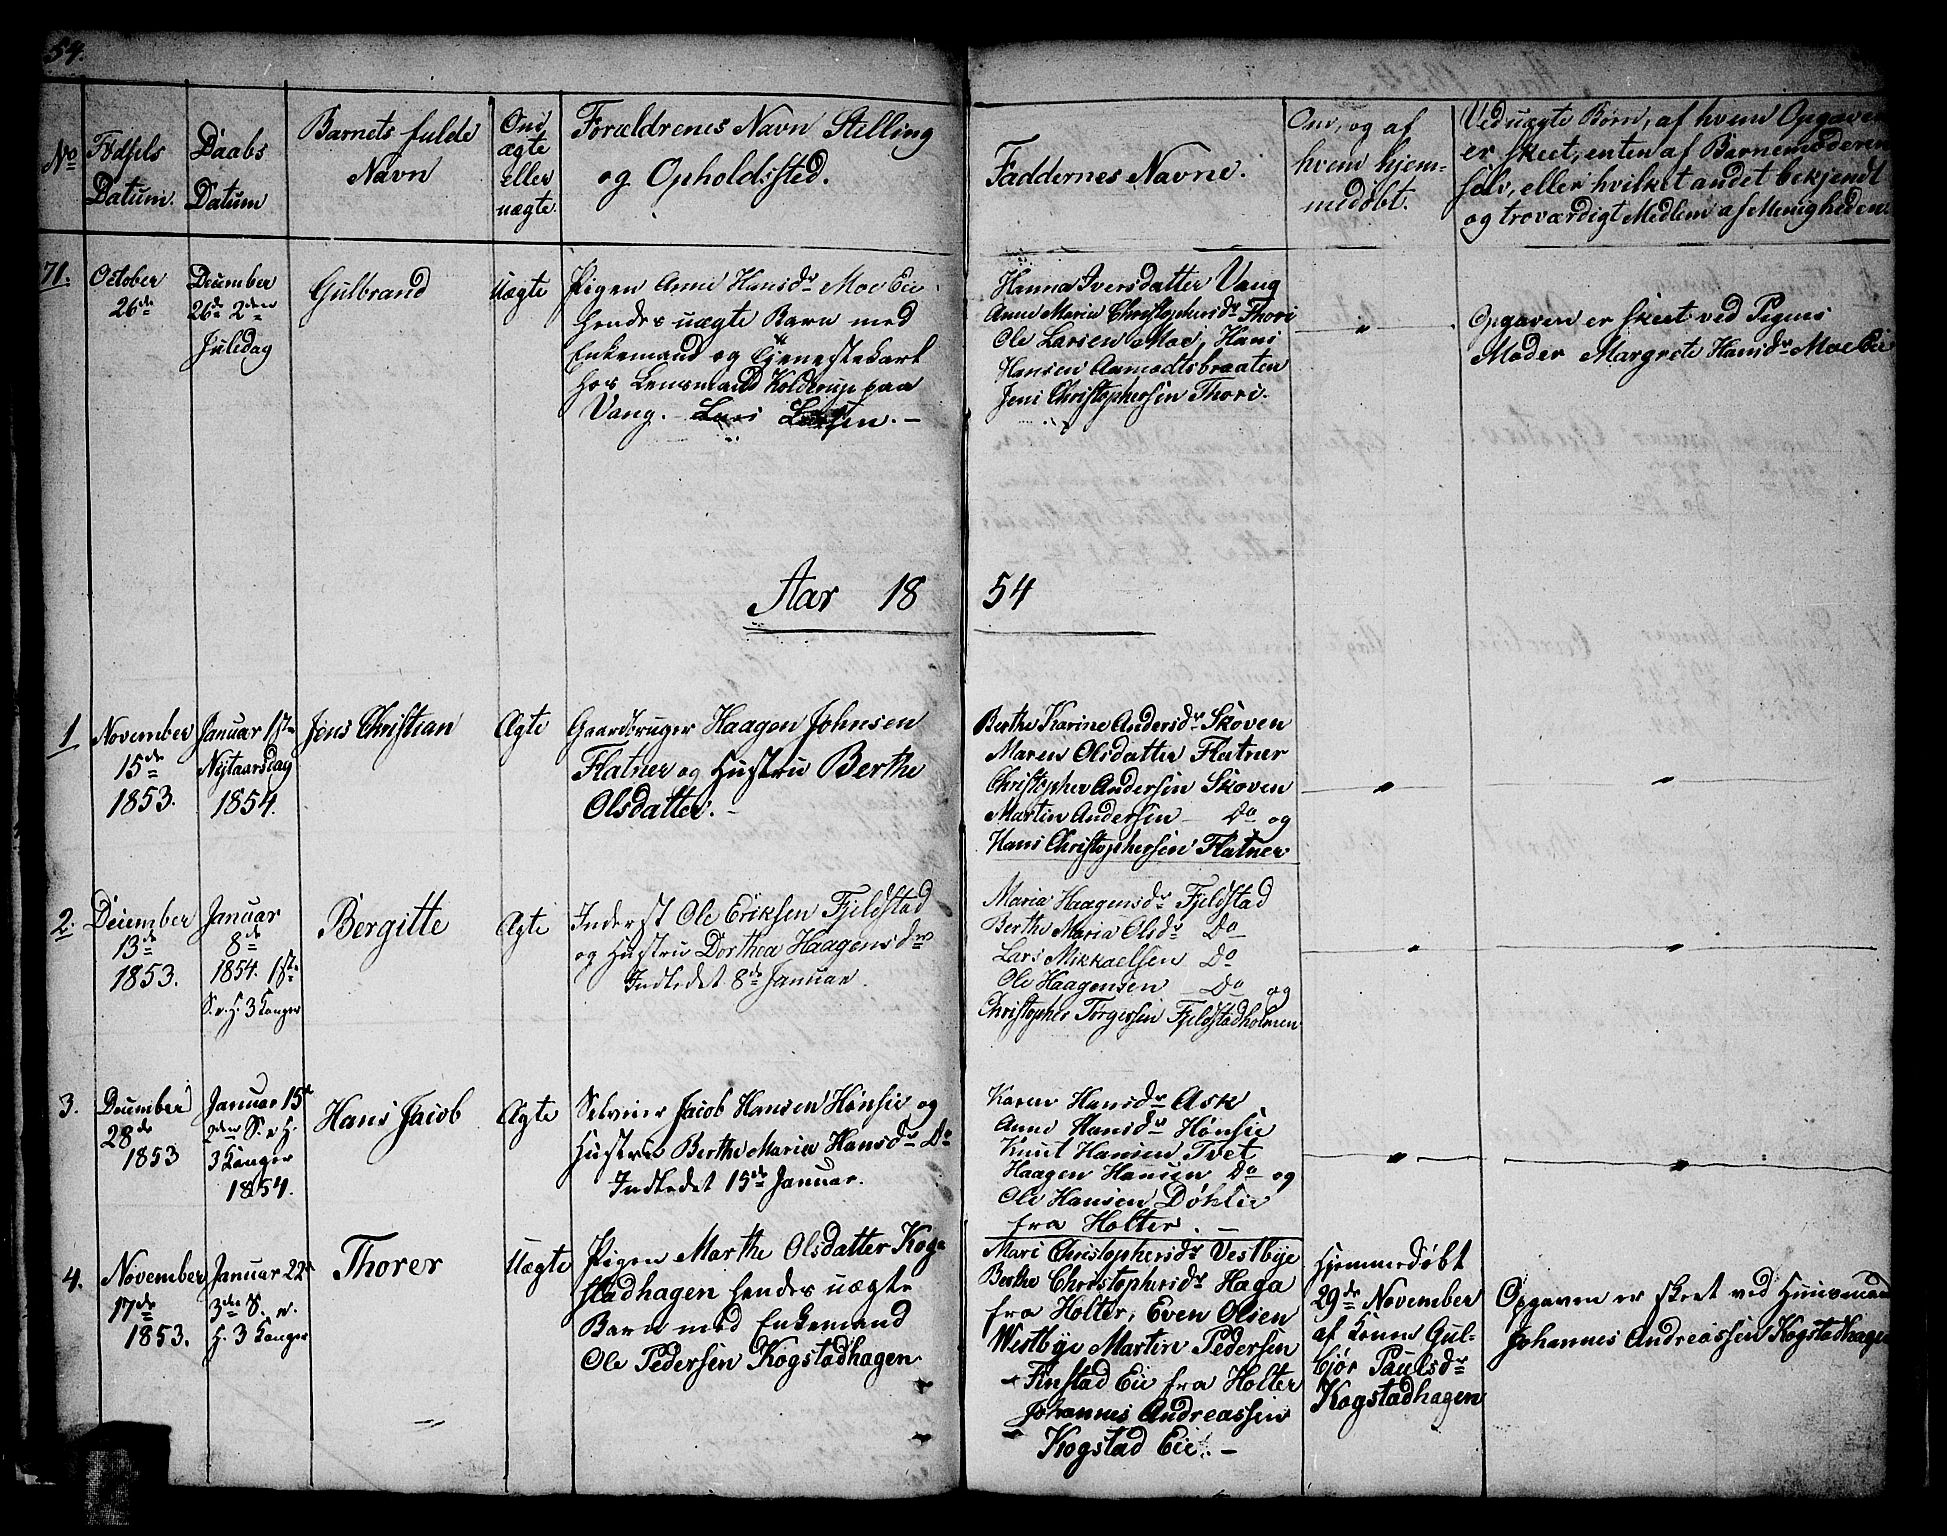 54.
No
Fødsels Datum.
Daabs Datum
Barnets fulde Navn
Om ægte eller uægte.
Forældrenes Navn Stilling
og Opholdssted.
Faddernes Navne.
Om, og af
hvem hjem-
medøbt.
Ved uægte Børn, af hvem Opgaven
er skeet, enten af Barnemoderen
selv, eller hvilket andet bekjendt
og troværdigt Medlem af Menigheden.
71.
October
26de
December
26de 2den
Juledag
Gulbrand
Uægte
Pigen Anne Hansdr Moe Eie
hendes uægte Barn med
Enkemand og Tjenestekarl
hos Lensmand Kolderup paa
Vang. Lars Larsen. -
Hanna Iversdatter Vang
Anne Maria Christophersdr Thori
Ole Larsen Moe, Hans
Hansen Aamodtsbraaten
Jens Christophersen Thori.
"
Opgaven er skeet ved Pigens
Moder Margrete Hansdr Moe Eie
Aar 1854
1
November
15de
1853.
Januar 1ste
Nytaarsdag
1854.
Jens Christian
Ægte
Gaardbruger Haagen Johnsen
Flatner og Hustru Berthe
Olsdatter. -
Berthe Karine Andersdr Skoven
Maren Olsdatter Flatner
Christopher Andersen Skoven
Martin Andersen - Do og
Hans Christophersen Flatner
"
"
2.
December
13de
1853.
Januar
8de
1854. 1ste
S. e. H. 3 Konger
Bergitte
Ægte
Inderst Ole Eriksen Fjeldstad
og Hustru Dorthea Haagensdr
Indledet 8de Januar.
Maria Haagensdr Fjeldstad
Berthe Maria Olsdr Do
Lars Mikkaelsen Do
Ole Haagensen Do og
Christopher Torgersen Fjeldstadholmen
"
"
3.
December
28de
1853
Januar 15de
2den S. e. H.
3 Konger
1854.
Hans Jacob
Ægte
Selveier Jacob Hansen Hønsie og
Hustru Berthe Maria Hansdr Do
Indledet 15de Januar.
Karen Hansdr Ask
Anne Hansdr Hønsie
Knut Hansen Tvet
Haagen Hansen Do og
Ole Hansen Døhlie
fra Holter. -
"
"
4.
November
17de
1853.
Januar 22de
3die S. e.
H. 3 Konger
Thorer
Uægte
Pigen Marthe Olsdatter Kog-
stadhagen hendes uægte
Barn med Enkemand
Ole Pedersen Kogstadhagen
Mari Christophersdr Vestbye
Berthe Christophersdr Haga
fra Holter, Even Olsen
Westbye Martin Pedersen
Finstad Eie fra Holter
Johannes Andreassen
Kogstad Eie. -
Hjemmedøbt
29de November
af Konen Gul-
bjør Paulsdr
Kogstadhagen
Opgaven er skeet ved Huusmand
Johannes Andreassen Kogstadhagen